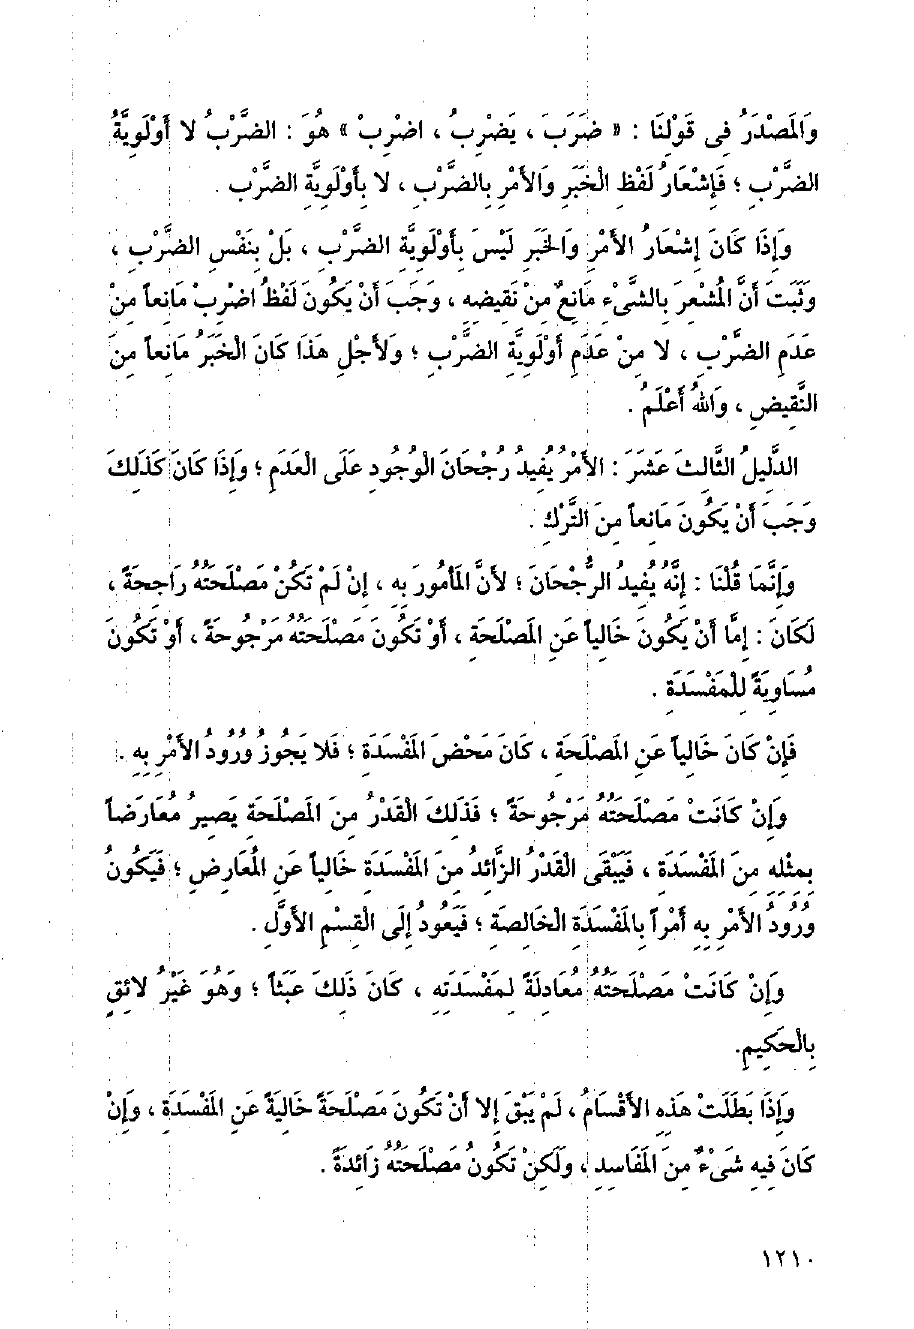 وَالمَصْدَرُ فِى قَوْلِنَا : « ضَرَبَ ، يَضْرِبُ ، اضْرِبْ » هُوَ : الضَّرْبُ لا أَوْلَوِيَّةُ
الضَّرْبِ ؛ فَإِشْعَارُ لَفْظِ الْخَبَرِ وَالأَمْرِ بِالضَّرْبِ ، لا بِأَوْلَوِيَّةِ الضَّرْبِ .
وَإِذَا كَانَ إِشْعَارُ الأَمْرِ وَالْخَبَرِ لَيْسَ بِأَوْلَوِيَّةِ الضَّرْبِ ، بَلْ بِنَفْسِ الضَّرْبِ ،
وَثَبَتَ أَنَّ المُشْعِرَ بِالشَّىْءِ مَانِعٌ مِنْ نَقِيضِهِ ، وَجَبَ أَنْ يَكُونَ لَفْظُ اضْرِبْ مَانِعاً مِنْ
عَدَمِ الضَّرْبِ ، لا مِنْ عَدَمِ أَوْلَوِيَّةِ الضَّرْبِ ؛ وَلأَجْلِ هَذَا كَانَ الْخَبَرُ مَانِعاً مِنَ
النَّقِيضِ ، وَاللهُ أَعْلَمُ .
الدَّلِيلُ الثَّالِثَ عَشَرَ : الأَمْرُ يُفِيدُ رُجْحَانَ الْوُجُودِ عَلَى الْعَدَمِ ؛ وَإِذَا كَانَ كَذَلِكَ
وَجَبَ أَنْ يَكُونَ مَانِعاً مِنَ التَّرْكِ .
وَإِنَّمَا قُلْنَا : إِنَّهُ يُفِيدُ الرُّجْحَانَ ؛ لأَنَّ المَأْمُورَ بِهِ ، إِنْ لَمْ تَكُنْ مَصْلَحَتُهُ رَاجِحَةً ،
لَكَانَ : إِمَّا أَنْ يَكُونَ خَالِياً عَنِ المَصْلَحَةِ ، أَوْ تَكُونَ مَصْلَحَتُهُ مَرْجُوحَةً ، أَوْ تَكُونَ
مُسَاوِيَةً لِلْمَفْسَدَةِ .
فَإِنْ كَانَ خَالِياً عَنِ المَصْلَحَةِ ، كَانَ مَحْضَ المَفْسَدَةِ ؛ فَلا يَجُوزُ وُرُودُ الأَمْرِ بِهِ .
وَإِنْ كَانَتْ مَصْلَحَتُهُ مَرْجُوحَةً ؛ فَذَلِكَ الْقَدْرُ مِنَ المَصْلَحَةِ يَصِيرُ مُعَارَضاً
بِمِثْلِهِ مِنَ المَفْسَدَةِ ، فَيَبْقَى الْقَدْرُ الزَّائِدُ مِنَ المَفْسَدَةِ خَالِياً عَنِ المُعَارِضِ ؛ فَيَكُونُ
وُرُودُ الأَمْرِ بِهِ أَمْراً بِالمَفْسَدَةِ الْخَالِصَةِ ؛ فَيَعُودُ إِلَى الْقِسْمِ الأَوَّلِ .
وَإِنْ كَانَتْ مَصْلَحَتُهُ مُعَادِلَةً لِمَفْسَدَتِهِ ، كَانَ ذَلِكَ عَبَثاً ؛ وَهُوَ غَيْرُ لائِقٍ
بِالْحَكِيمِ.
وَإِذَا بَطَلَتْ هَذِهِ الأَقْسَامُ ، لَمْ يَبْقَ إِلا أَنْ تَكُونَ مَصْلَحَةً خَالِيَةً عَنِ المَفْسَدَةِ ، وَإِنْ
كَانَ فِيهِ شَىْءٌ مِنَ المَفَاسِدِ ، وَلَكِنْ تَكُونُ مَصْلَحَتُهُ زَائِدَةً .
١٢١٠